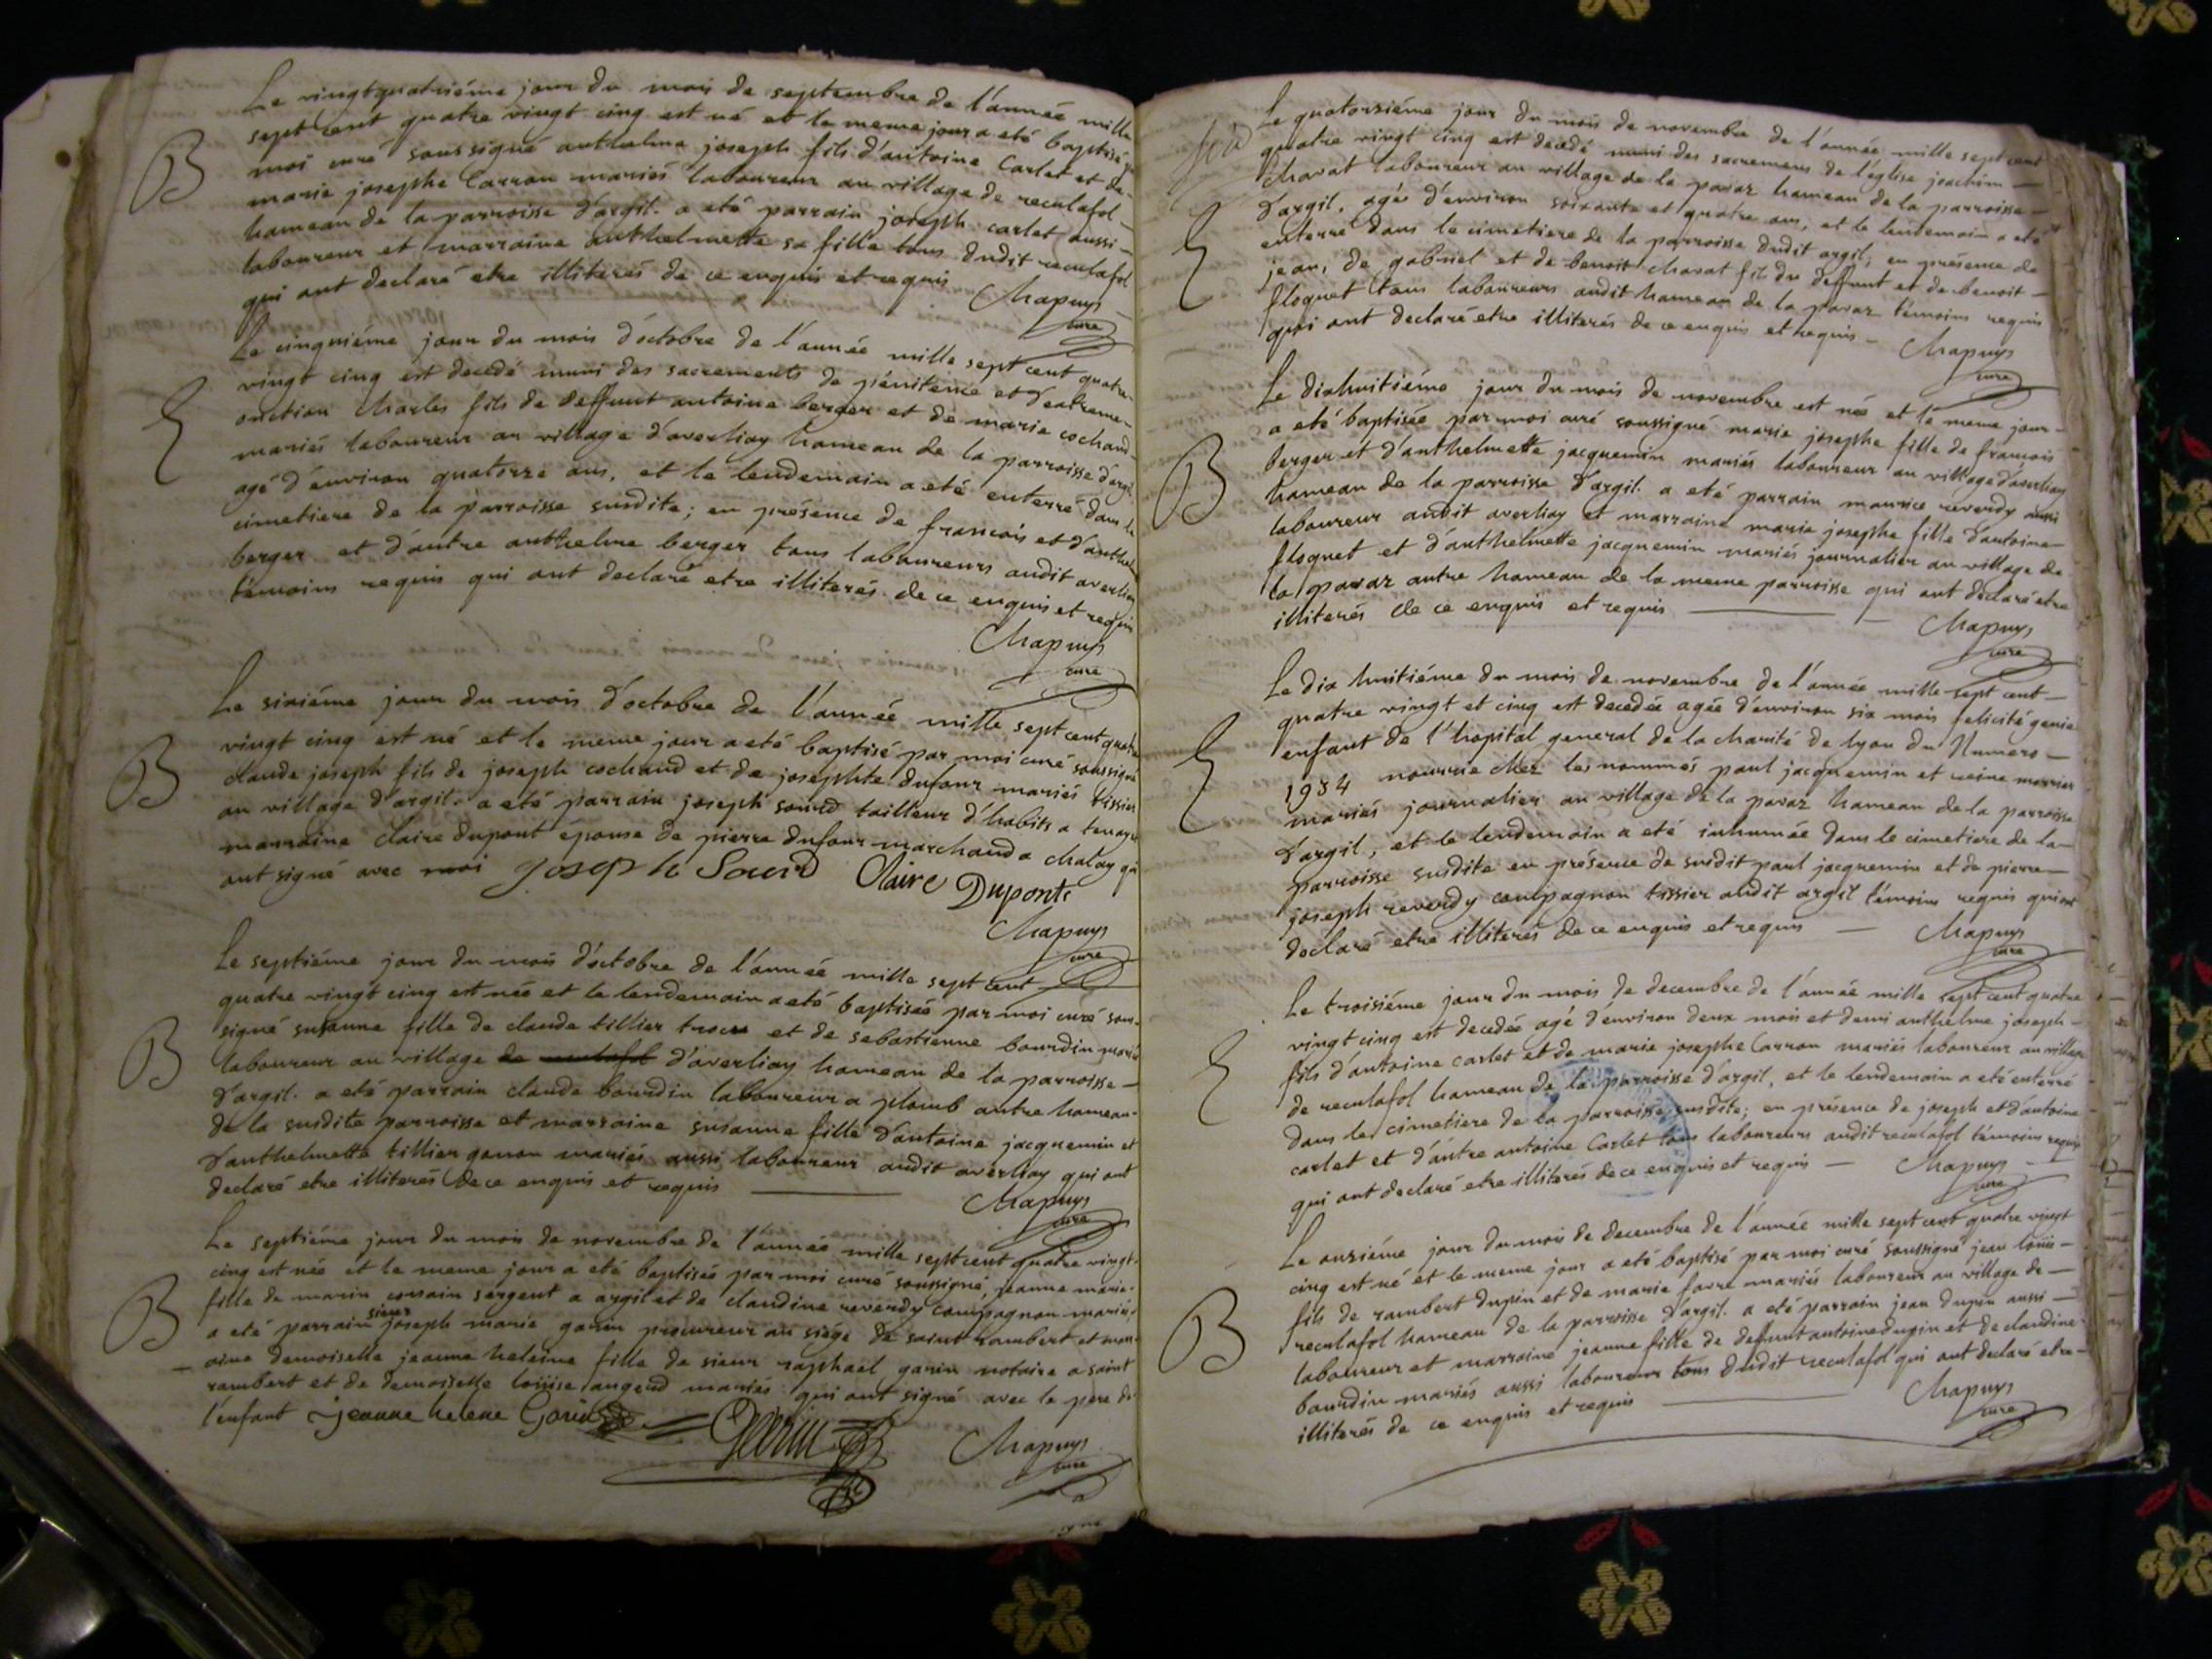 Le vingtquatriéme jour du mois de septembre de l'année mille
sept cent quatre vingt cinq est né et le meme jour a eté baptisé par
B
moi curé soussigné anthelme joseph fils d'antoine Carlet et de
marie josephe Carron mariés laboureur au village de reculafol
hameau de la parroisse d'argil. a eté parrain joseph carlet aussi
laboureur et marraine anthelmette sa fille tous dudit reculafol
qui ont declaré etre illiterés de ce enquis et requis
Chapuys
curé
Le cinquiéme jour du mois d'octobre de l'année mille sept cent quatre
vingt cinq est decedé muni des sacrements de pénitence et d'extreme
onction Charles fils de deffunt antoine berger et de marie cochand
mariés laboureur au village d'averliay hameau de la parroisse d'argil
agé d'environ quatorze ans, et le lendemain a eté enterré dans le
cimetiere de la parroisse susdite; en présence de francois et d'anthel
berger et d'autre anthelme berger tous laboureurs audit averliay
témoins requis qui ont declaré etre illiterés de ce enquis et requis
Chapuys
curé
Le sixiéme jour du mois d'octobre de l'année mille sept cent quatre
vingt cinq est né et le meme jour a eté baptisé par moi curé soussigné
B
claude joseph fils de joseph cochand et de josephte dufour mariés tissier
au village d'argil. a eté parrain joseph sourd tailleur d'habits a tenay
marraine claire dupont épouse de pierre dufour marchand a chalay qui
ont signé avec moi Joseph Sourd Claire Duponte
Chapuys
curé
Le septiéme jour du mois d'octobre de l'année mille sept cent
quatre vingt cinq est née et le lendemain a eté baptisée par moi curé sous
signé susanne fille de claude tillier et de sebastienne bourdin mariés
B
laboureur au village de reculafol d'averliay hameau de la parroisse
d'argil. a eté parrain claude bourdin laboureur a plomb autre hameau
de la susdite parroisse et marraine susanne fille d'antoine jacquemin et
d'anthelmette tillier gonon mariés aussi laboureur audit averliay qui ont
declaré etre illiterés de ce enquis et requis
Chapuys
curé
Le septiéme jour du mois de novembre de l'année mille sept cent quatre vingt
cinq est née et le meme jour a eté baptisée par moi curé soussigné, jeanne marie
fille de marin sergent a argil et de claudine reverdy compagnon mariés
B
a eté parrain sieur joseph marie garin procureur au siége de saint rambert et mar
aine demoiselle jeanne heleine fille de sieur raphael garin notaire a saint
rambert et de demoiselle loüise augerd mariés qui ont signé avec le pere de
l'enfant Jeanne helene Garin Garin
Chapuys
curé
Le quatorziéme jour du mois de novembre de l'année mille sept cent
quatre vingt cinq est decedé muni des sacremens de l'église joachim
Chavat laboureur au village de la pavaz hameau de la parroisse
d'argil, agé d'environ soixante et quatre ans, et le lendemain a eté
enterré dans le cimetiere de la parroisse dudit argil; en présence de
jean, de gabriel et de benoit Chavat fils du deffunt et de benoit
floquet tous laboureurs audit hameau de la pavaz témoins requis
qui ont declaré etre illiterés de ce enquis et requis
Chapuys
curé
Le dixhuitiéme jour du mois de novembre est née et le meme jour
a eté baptisée par moi curé soussigné marie josephe fille de francois
B
berger et d'anthelmette jacquemin mariés laboureur au village d'averliay
hameau de la parroisse d'argil. a eté parrain maurice reverdy aussi
laboureur audit averliay et marraine marie josephe fille d'antoine
floquet et d'anthelmette jacquemin mariés journalier au village de
la pavaz autre hameau de la meme parroisse qui ont declaré etre
illiterés de ce enquis et requis
Chapuys
curé
Le dix huitiéme du mois de novembre de l'année mille sept cent
quatre vingt et cinq est decedée agée d'environ six mois felicité genie
enfant de l'hopital general de la charité de lyon du Numero
1984 nourrie chez les nommés paul jacquemin et reine
mariés journalier au village de la pavaz hameau de la parroisse
d'argil, et le lendemain a eté inhumée dans le cimetiere de la
parroisse susdite en présence de susdit paul jacquemin et de pierre
joseph reverdy compagnon tissier audit argil témoins requis qui ont
declaré etre illiterés de ce enquis et requis
Chapuys
curé
Le troisiéme jour du mois de decembre de l'année mille sept cent quatre
vingt cinq est decedée agé d'environ deux mois et demi anthelme joseph
fils d'antoine carlet et de marie josephe Carron mariés laboureur au village
de reculafol hameau de la parroisse d'argil, et le lendemain a eté enterré
dans le cimetiere de la parroisse susdite; en présence de joseph et d'antoine
carlet et d'autre antoine Carlet tous laboureurs audit reculafol témoins requis
qui ont declaré etre illiterés de ce enquis et requis
Chapuys
curé
Le onziéme jour du mois de decembre de l'année mille sept cent quatre vingt
cinq est né et le meme jour a eté baptisé par moi curé soussigné jean loüis
fils de rambert dupin et de marie favre mariés laboureur au village de
B
reculafol hameau de la parroisse d'argil. a eté parrain jean dupin aussi
laboureur et marraine jeanne fille de deffunt antoine dupin et de claudine
bourdin mariés aussi laboureur tous dudit reculafol qui ont declaré etre
illiterés de ce enquis et requis
Chapuys
curé